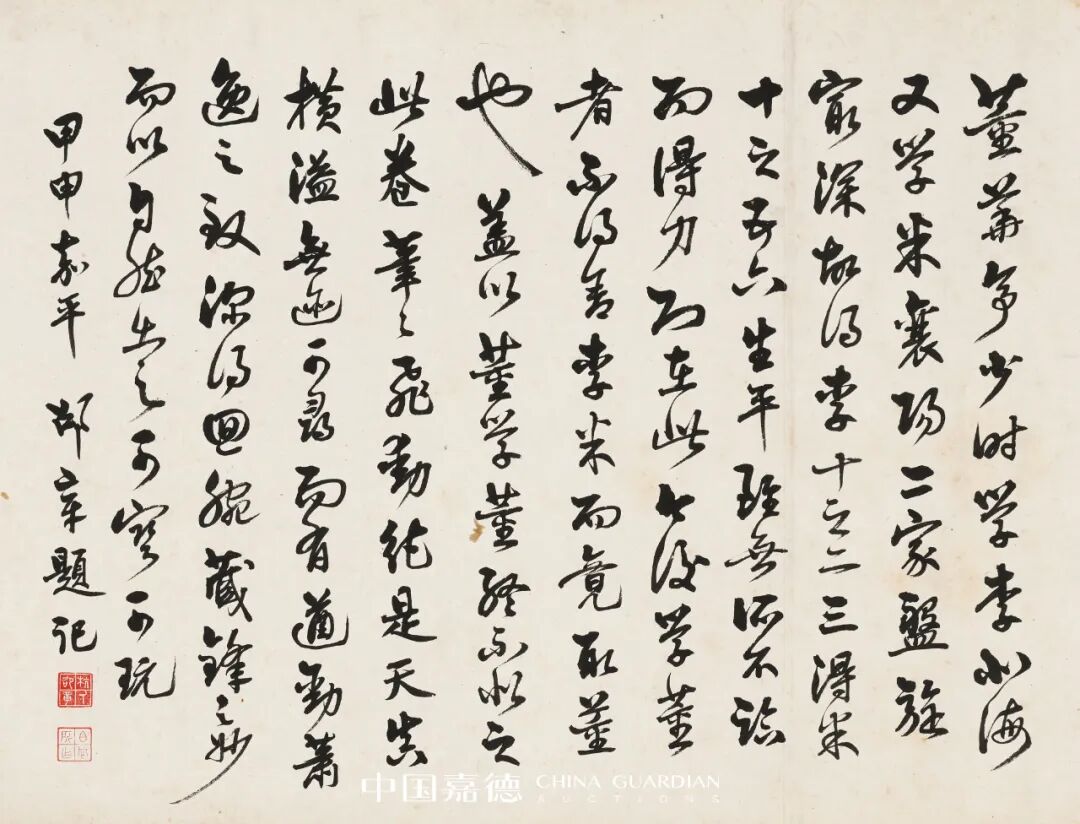 董華亭少时学李北海
又学米襄陽二家盤旋
最深故得李十之二三得米
十之五六生平雖無所不臨
而得力即在此今後学董
者不得舍李米而竟取董
也 蓋以董学董終不似之
此卷筆〻飛動純是天真
横溢無迹可尋而有遒勁蕭
逸之致深得回腕藏鋒之妙
而以自然出之可寶可玩
甲申嘉平 邵章題記
中国嘉德 CHINA GUARDIAN
AUCTIONS